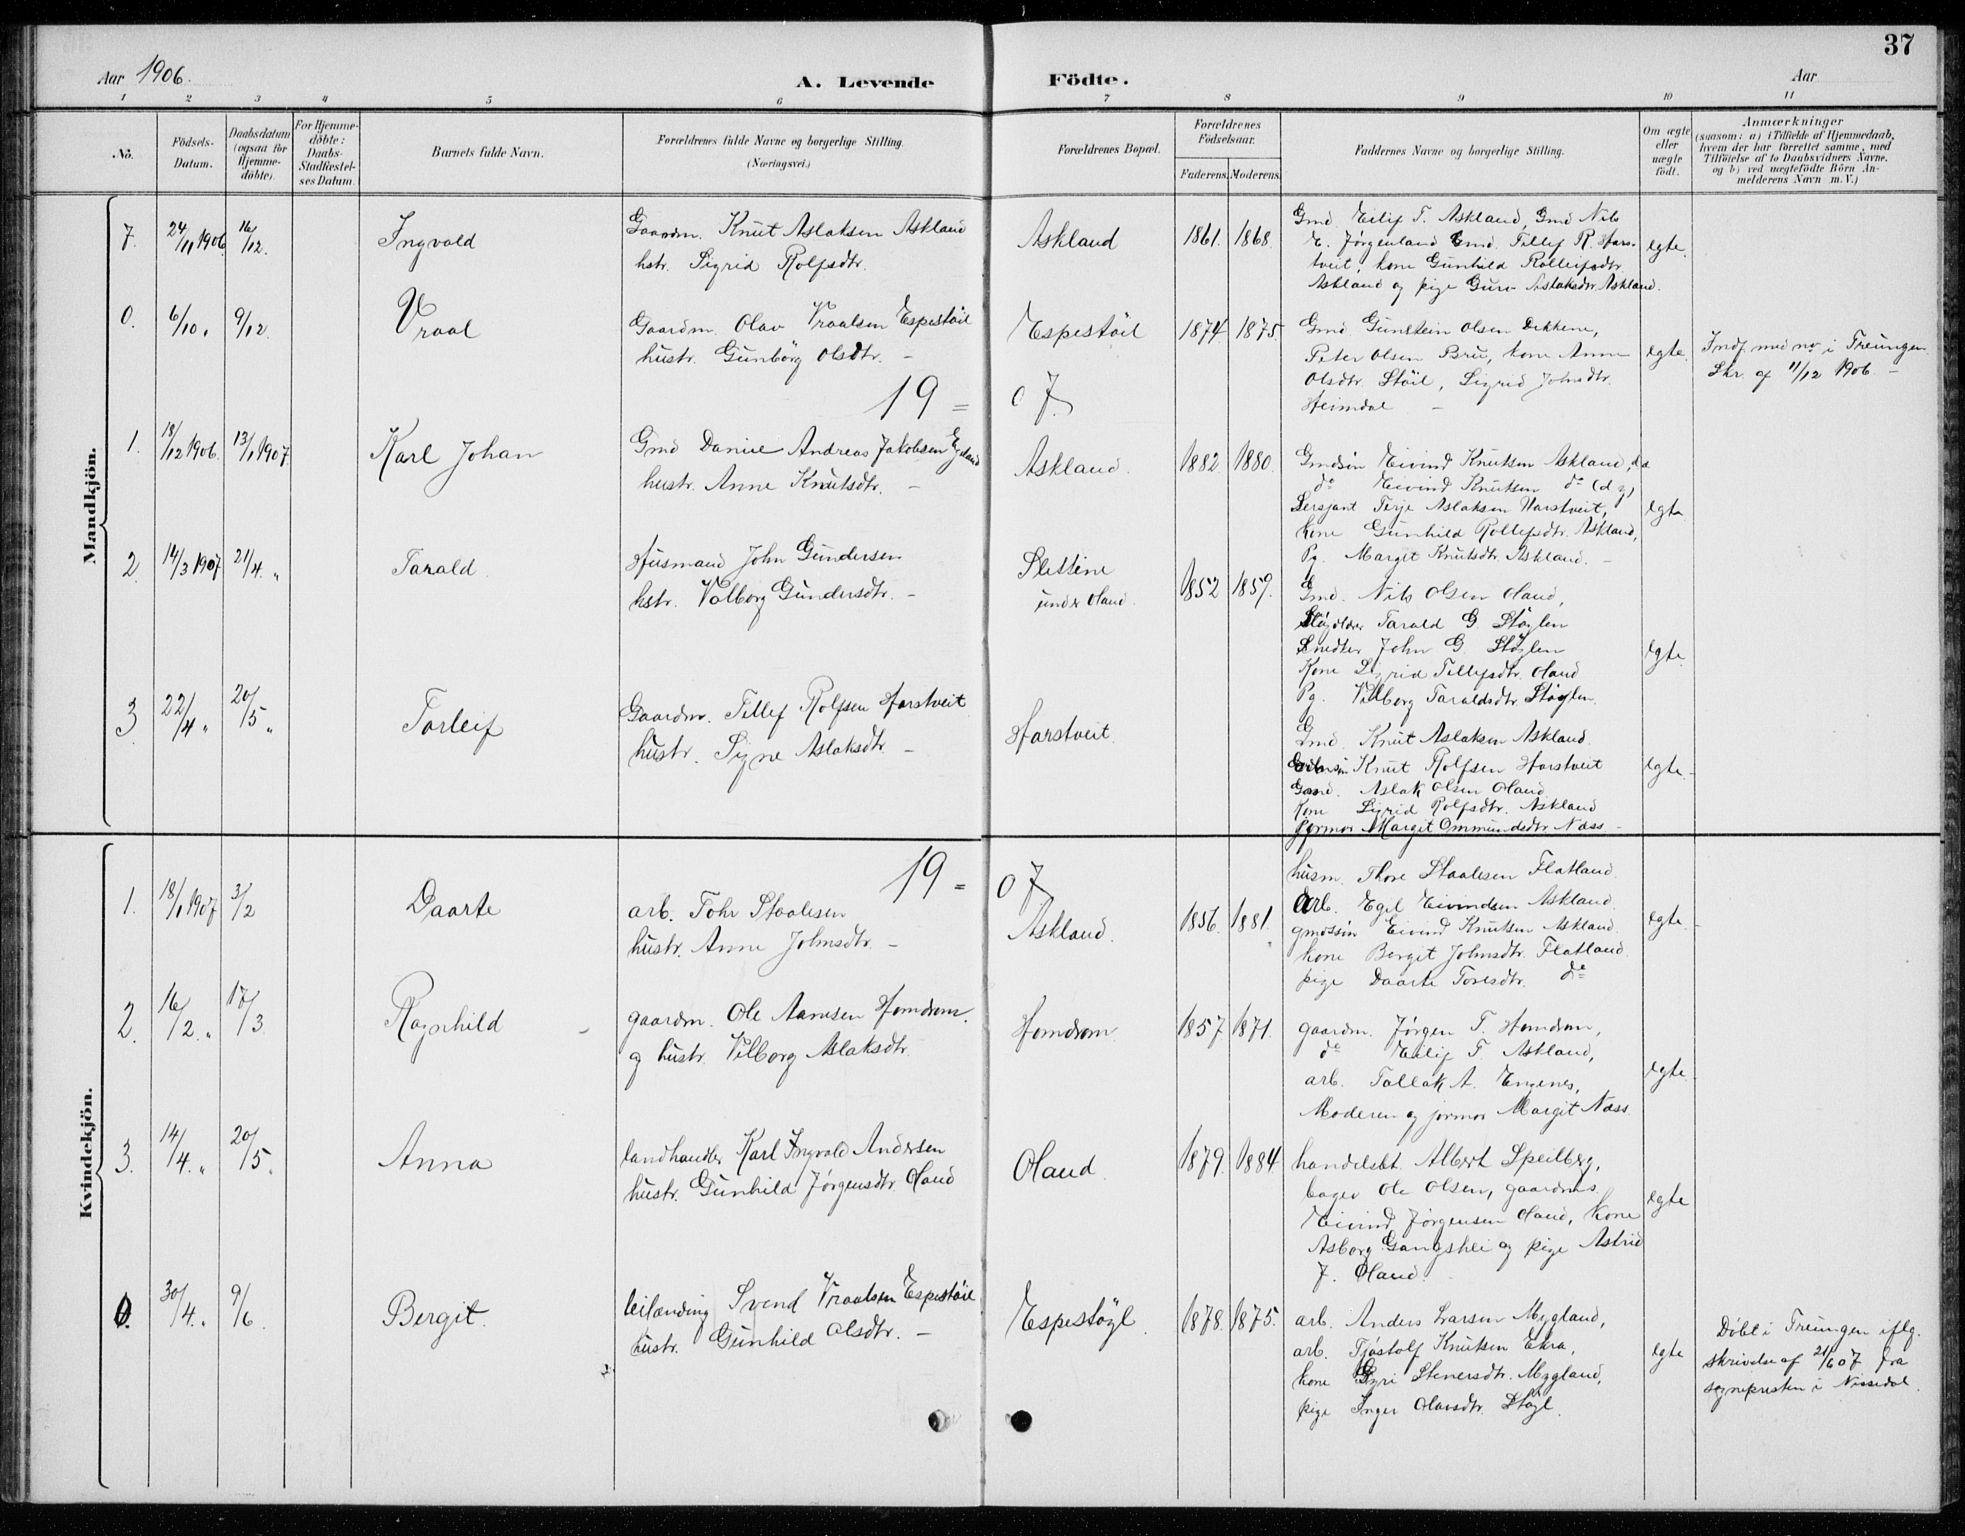 37
Aar 1906.
A. Levende Födte.
Aar
1 2 3 4 5 6 7 8 9 10 11
No.
Födsels-Datum.
Daabsdatum (ogsaa for Hjemme-döbte).
For Hjemme-döbte: Daabs-Stadfæstel-ses Datum.
Barnets fulde Navn.
Forældrenes fulde Navne og borgerlige Stilling. (Næringsvei.)
Forældrenes Bopæl.
Forældrenes Födselsaar.
Faderens. Moderens.
Faddernes Navne og borgerlige Stilling.
Om ægte eller uægte födt.
Anmærkninger
(saasom: a) i Tilfælde af Hjemmedaab,
hvem der har forrettet samme, med
Tilföielse af to Daabsvidners Navne,
og b) ved uægtefödte Börn An-
melderens Navn m. V.)
Mandkjön.
7. 24/11 1906. 16/12. Ingvald
Gaardm. Knut Aslaksen Askland
hstr. Sigrid Rolfsdtr.
Askland 1861. 1868.
Gmd. Eilif T. Askland, Gmd Nils
E. Jørgenland Gmd. Tellef R. Hars-
tveit, kone Gunhild Rolleifsdtr
Askland og pige Guro Aslaksdtr. Askland.
egte.
0. 6/10. " 9/12. Vraal
Gaardm. Olav Vraalsen Espestöil
hustr. Gunbörg Olsdtr. -
Espestöil 1874 1875.
Gmd Gunstein Olsen Dekkene,
Peter Olsen Bru, kone Anne
Olsdtr. Stöil, Sigrid Johnsdtr.
Heimdal -
egte.
Indf. med no i Treungen
Skr. af 11/12 1906. -
19 = 07.
1. 18/12 1906. 13/1 1907. Karl Johan
Gmd Daniel Andreas Jakobsen
hustr. Anne Knutsdtr. -
Askland. 1882 1880.
Gmdsön Eivind Knutsen Askland,
do Eivind Knutsen do (d y)
Sersjant Terje Aslaksen Harstveit,
kone Gunhild Rollefsdtr. Askland,
Pg. Margit Knutsdtr. Askland. -
egte
2. 14/3 1907 21/4. " Tarald.
Husmand John Gundersen
hstr. Valborg Gundersdtr. -
Slettene
under Oland.
1852 1859.
Gmd. Nils Olsen Oland,
Tarald G. Støylen
Snedker John G. Støylen
Kone Sigrid Tellefsdtr. Oland
Pg. Vilborg Taraldsdtr. Støylen
egte.
3. 22/4 " 20/5 " Torleif
Gaardm. Tellef Rolfsen Harstveit
hustr. Signe Aslaksdtr. -
Harstveit.
Gmd. Knut Aslaksen Askland.
Knut Rolfsen Harstveit
Gmd. Aslak Olsen Oland
Kone Sigrid Rolfsdtr. Askland
jormor Margit Ommundsdtr. Næss -
egte -
Kvindekjön.
19 = 07
1. 18/1 1907 3/2 Daarte
arb. Tohr Staalesen
hustr. Anne Johnsdtr. -
Askland. 1856. 1881.
husm. Thore Staalesen Flatland.
arb. Egel Eivindsen Askland.
gmdssön Eivind Knutsen Askland.
kone Bergit Johnsdtr. Flatland.
pige Daarte Toresdtr. do
egte.
2. 16/2. " 17/3 Ragnhild
gaardm. Ole Aanesen Homdrom.
og hustr. Vilborg Aslaksdtr.
Homdrom. 1857 1871.
gaardm. Jørgen T. Homdrom,
do Eilif T. Askland,
arb. Tallak A. Engenes,
Moderen og jormor Margit Næss
egte.
3. 14/4. " 20/5. Anna
landhandler Karl Ingvald Andersen
hustr. Gunhild Jørgensdtr. Oland
Oland. 1879. 1884.
handelsbt. Albert Speilberg,
bager Ole Olsen, gaardms.
Eivind Jørgensen Oland, kone
Asborg Gangshei og pige Astrid
J. Oland.
egte
0. 30/4. " 9/6. Bergit.
leilænding Svend Vraalsen Espestöil
hustr. Gunhild Olsdtr. -
Espestøyl. 1878. 1875.
arb. Anders Larsen Mygland,
arb. Tjøstolf Knutsen Ekra,
kone Gyri Stenersdtr. Mygland,
pige Inger Olavsdtr. Støyl.
egte
Döbt i Treungen iflg.
skrivelse af 21/6 07 fra
sognepresten i Nissedal.